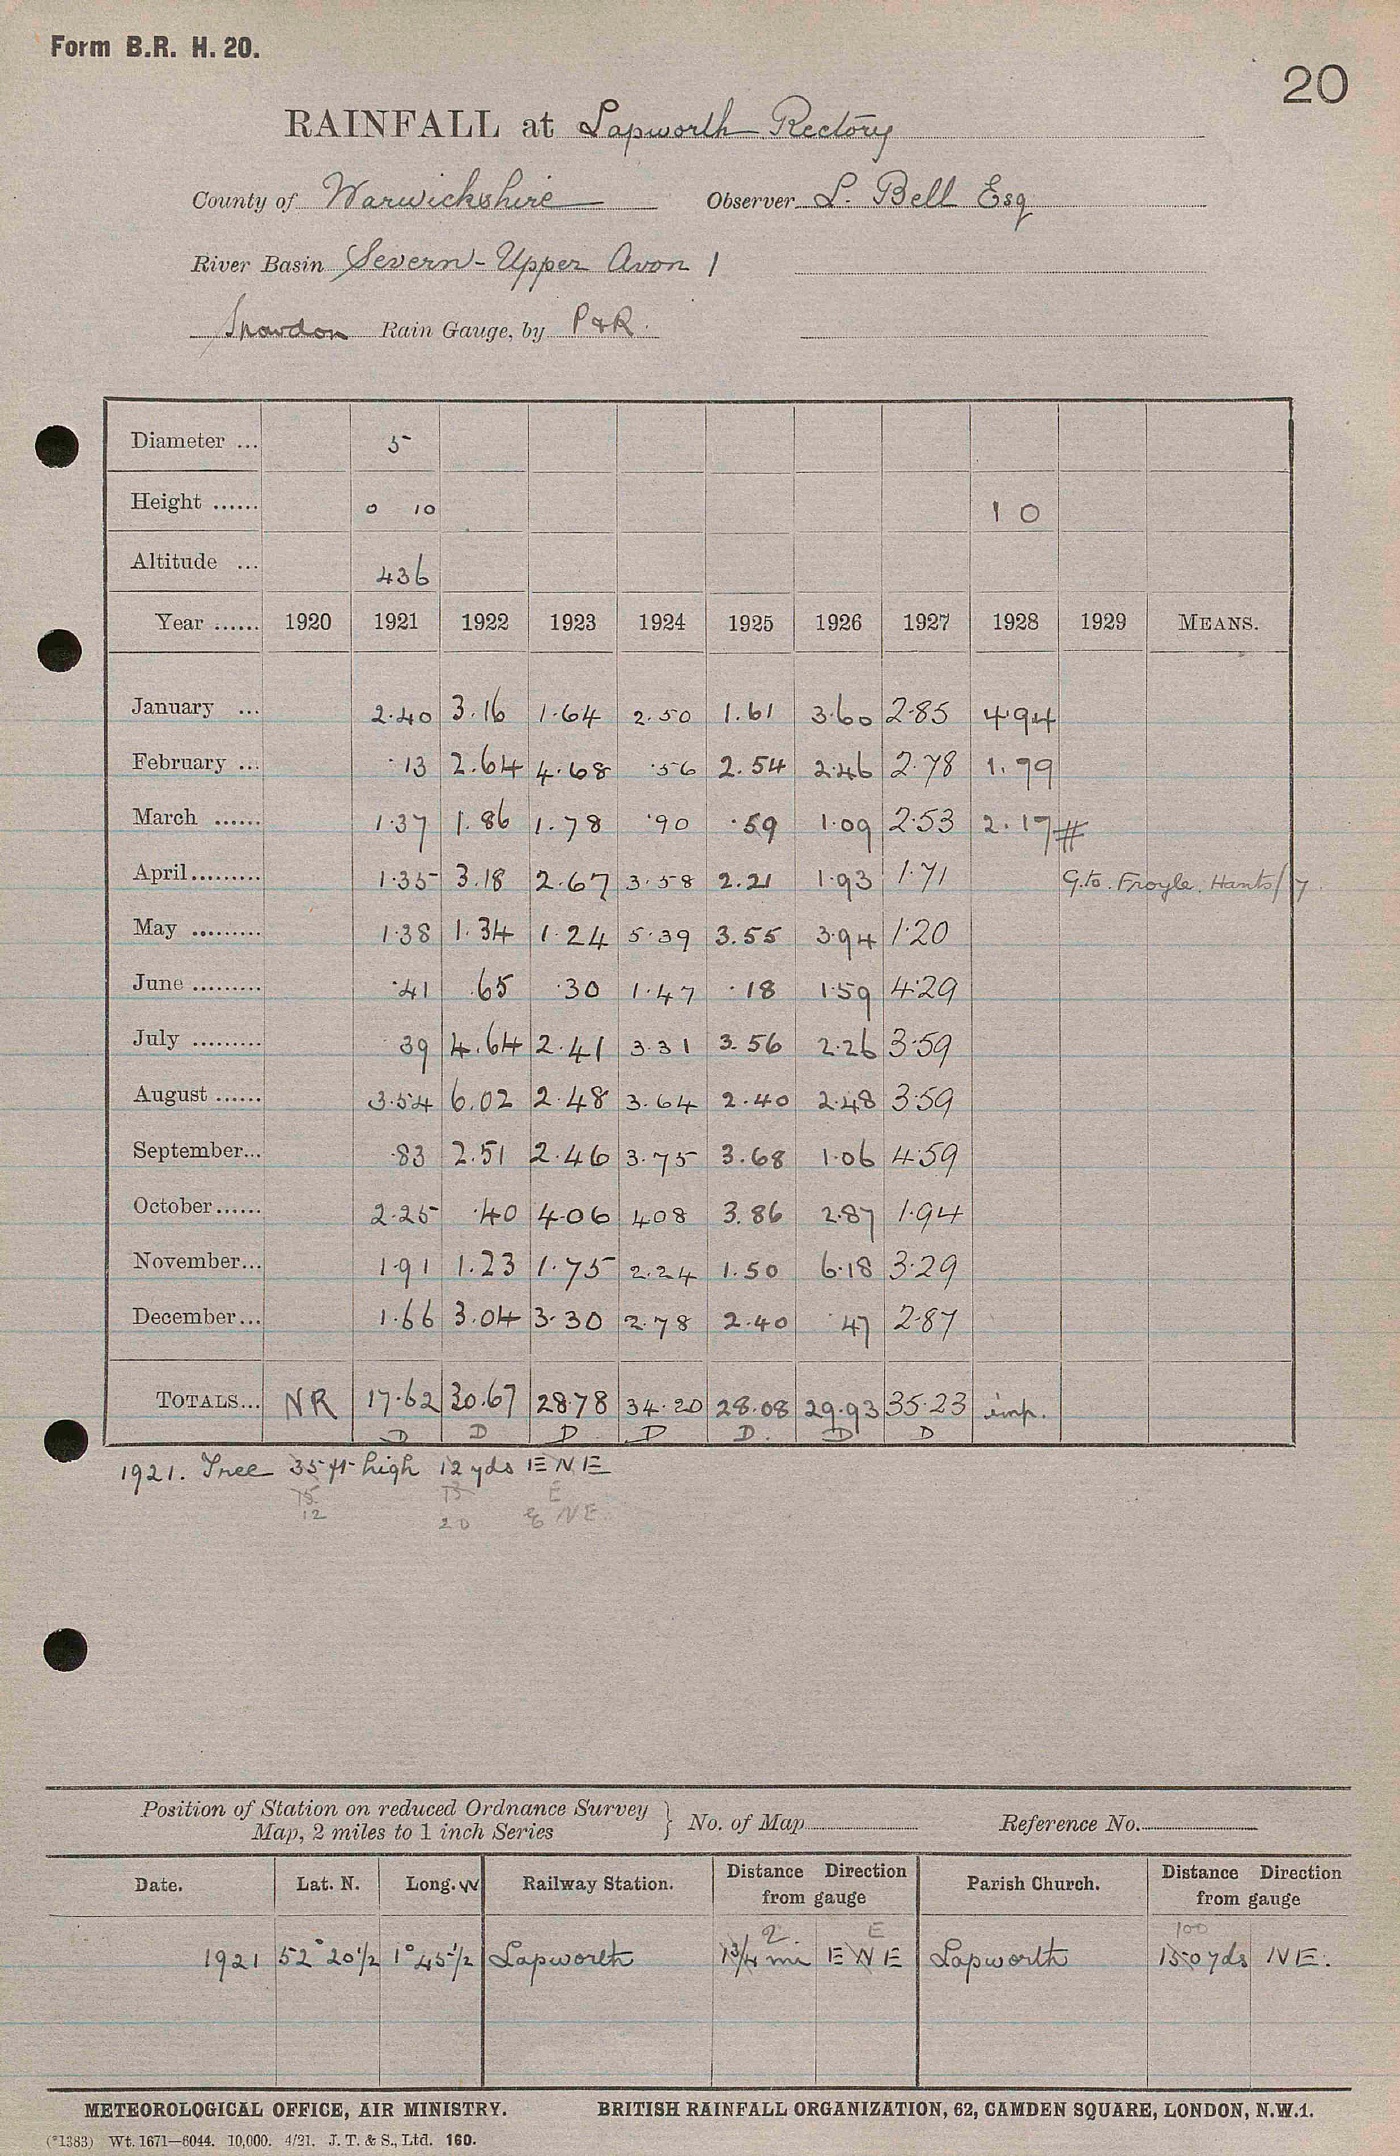 Form B.R. H. 20.
20
RAINFALL at Lapworth Rectory
County of Warwickshire Observer L. Bell Esq
River Basin Severn - Upper Avon 1
Snowdon Rain Gauge, by P & R.
Diameter ... 5
Height ...... 0 10 1 0
Altitude ... 436
Year ...... 1920 1921 1922 1923 1924 1925 1926 1927 1928 1929 MEANS.
January ... 2.40 3.16 1.64 2.50 1.61 3.60 2.85 4.94
February ... .13 2.64 4.68 .56 2.54 2.46 2.78 1.79
March ...... 1.37 1.86 1.78 .90 .59 1.09 2.53 2.17 #
April ......... 1.35 3.18 2.67 3.58 2.21 1.93 1.71 G. to. Froyle. Hants/7
May ......... 1.38 1.34 1.24 5.39 3.55 3.94 1.20
June ......... .41 .65 .30 1.47 .18 1.59 4.29
July ......... 39 4.64 2.41 3.31 3.56 2.26 3.59
August ...... 3.54 6.02 2.48 3.64 2.40 2.48 3.59
September... .83 2.51 2.46 3.75 3.68 1.06 4.59
October ...... 2.25 .40 4.06 4.08 3.86 2.87 1.94
November... 1.91 1.23 1.75 2.24 1.50 6.18 3.29
December... 1.66 3.04 3.30 2.78 2.40 .47 2.87
TOTALS... NR 17.62 30.67 28.78 34.20 28.08 29.93 35.23 imp.
D D D D D. D D
1921. Tree 35 ft high 12 yds ENE
15 13 E
12 20 & NE.
Position of Station on reduced Ordnance Survey
Map, 2 miles to 1 inch Series } No. of Map Reference No.
Date. Lat. N. Long. W Railway Station. Distance Direction from gauge Parish Church. Distance Direction from gauge
2. E 100
1921 52° 20 1/2 1° 45 1/2 Lapworth 1 3/4 mi ENE Lapworth 150 yds NE.
METEOROLOGICAL OFFICE, AIR MINISTRY. BRITISH RAINFALL ORGANIZATION, 62, CAMDEN SQUARE, LONDON, N.W.1.
(*1383) Wt. 1671—6044. 10,000. 4/21. J. T. & S., Ltd. 160.